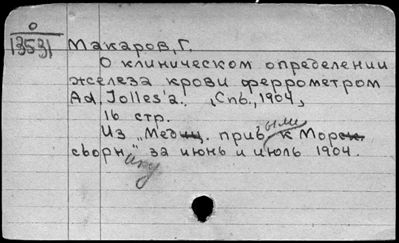 0
13531
Макаров, Г.
О клиническом определении
железа крови феррометром
Ad. Jolles'a. , Спб., 1904,
16 стр.
Из „Медиц. приб ыли к Морск.
сборн ику " за июнь и июль 1904.